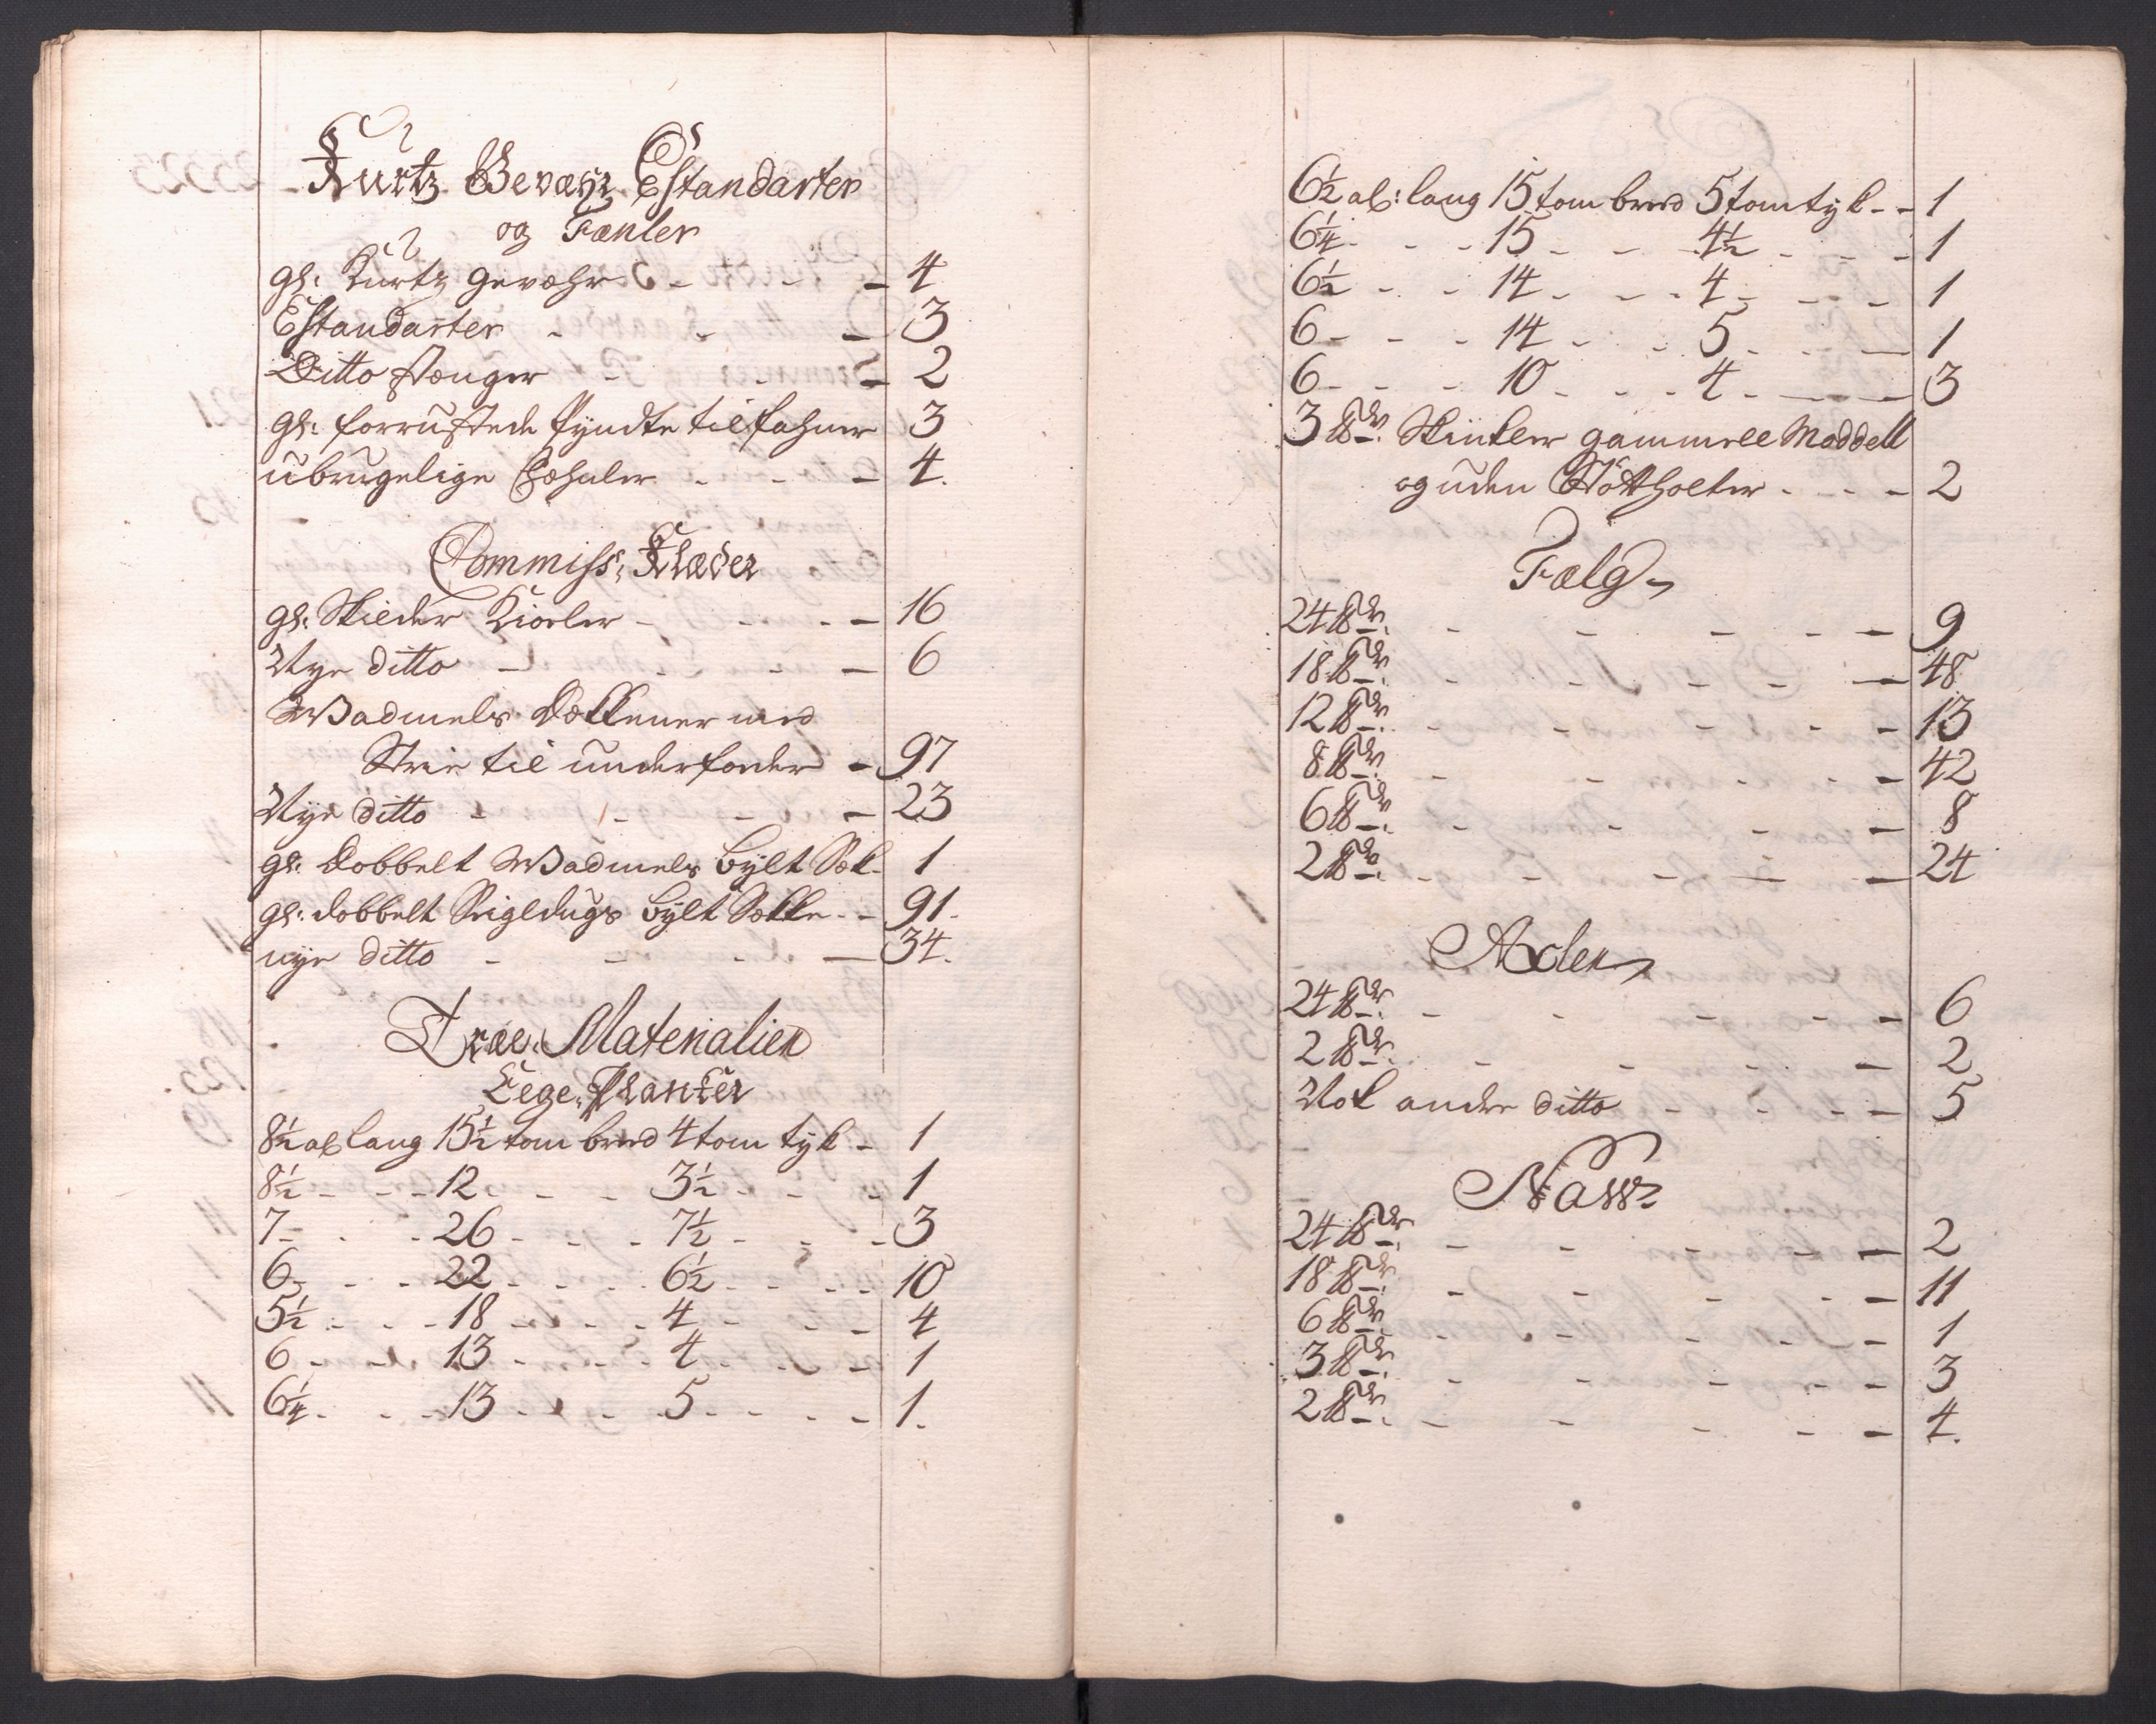 Kurtz Gevæhr Estandarter
og Fænler
gl: Kurtz gevæhr - - - 4
Estandarter - - - 3
Ditto stænger - - - 2
gl: forrustede Pyndte til fahner 3
ubrugelige Fæhnler - - - 4.
Commiss: Klæder
gl: Skilder Kiorler - - - 16
Nye ditto - - - 6
Wadmels Dækkener med
Strie til underfoeder - 97
Nye ditto - - - 23
gl: dobbelt Wadmels bylt Sæk - 1
gl: dobbelt Seigldugs bylt Sække - - 91.
nye ditto - - - 34.
Træe Materialier
Eege Plancker
8½ al lang 15½ tom breed 4 tom tyk - 1
8½ - - - 12 - - - 3½ - - - 1
7 - - - 26 - - - 7½ - - - 3
6 - - - 22 - - - 6½ - - - 10
5½ - - - 18 - - - 4 - - - 4
6 - - - 13 - - - 4 - - - 1
6¼ - - - 13 - - - 5 - - - 1.
6½ al: lang 15 tom breed 5 tom tyk - - 1
6¼ - - - 15 - - - 4½ - - - 1
6½ - - - 14 - - - 4 - - - 1
6 - - - 14 - - - 5 - - - 1
6 - - - 10 - - - 4 - - - 3
3 ℔dr. Skinkler gammell Moddell
og uden Støttholter - - - 2
Fælg
24 ℔dr. - - - 9
18 ℔dr. - - - 48
12 ℔dr. - - - 13
8 ℔dr. - - - 42
6 ℔dr. - - - 8
2 ℔dr. - - - 24
Axler
24 ℔dr. - - - 6
2 ℔dr. - - - 2
Nok andre ditto - - - 5
Naww
24 ℔dr. - - - 2
18 ℔dr. - - - 11
6 ℔dr. - - - 1
3 ℔dr. - - - 3
2 ℔dr. - - - 4.